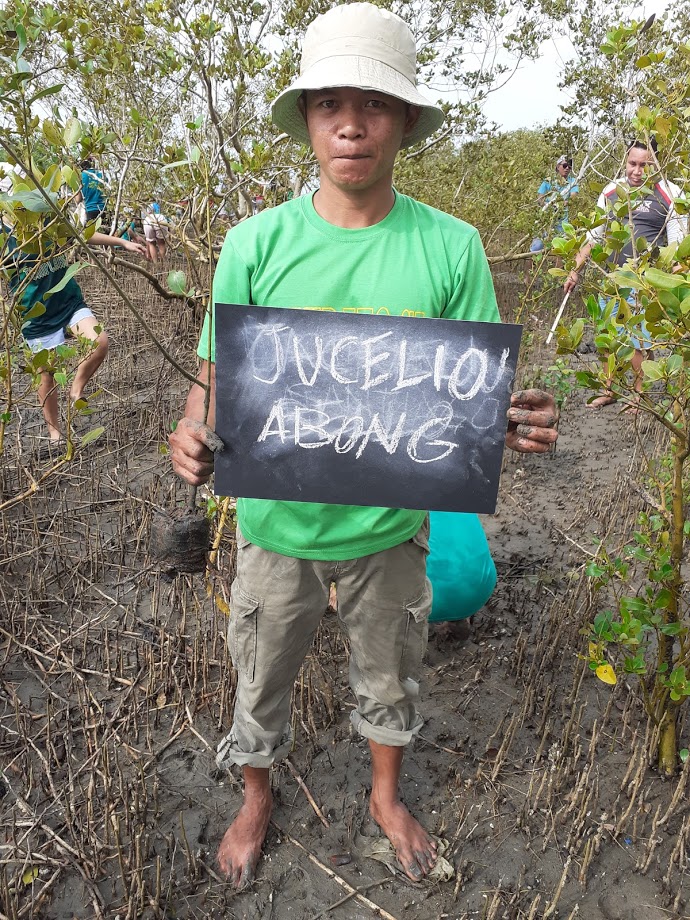 JUCELIOU
ABONG